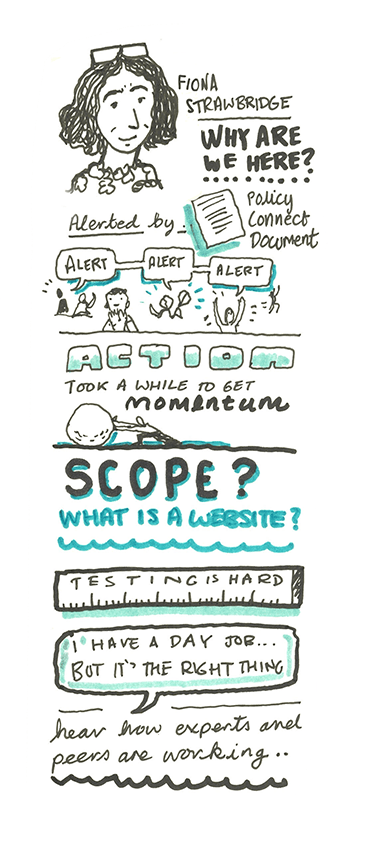 FIONA
STRAWBRIDGE
WHY ARE
WE HERE?
Alerted by
Policy
Connect
Document
ALERT ALERT ALERT
ACTION
TOOK A WHILE TO GET
momentum
SCOPE?
WHAT IS A WEBSITE?
TESTING IS HARD
I HAVE A DAY JOB...
BUT IT'S THE RIGHT THING
hear how experts and
peers are working..